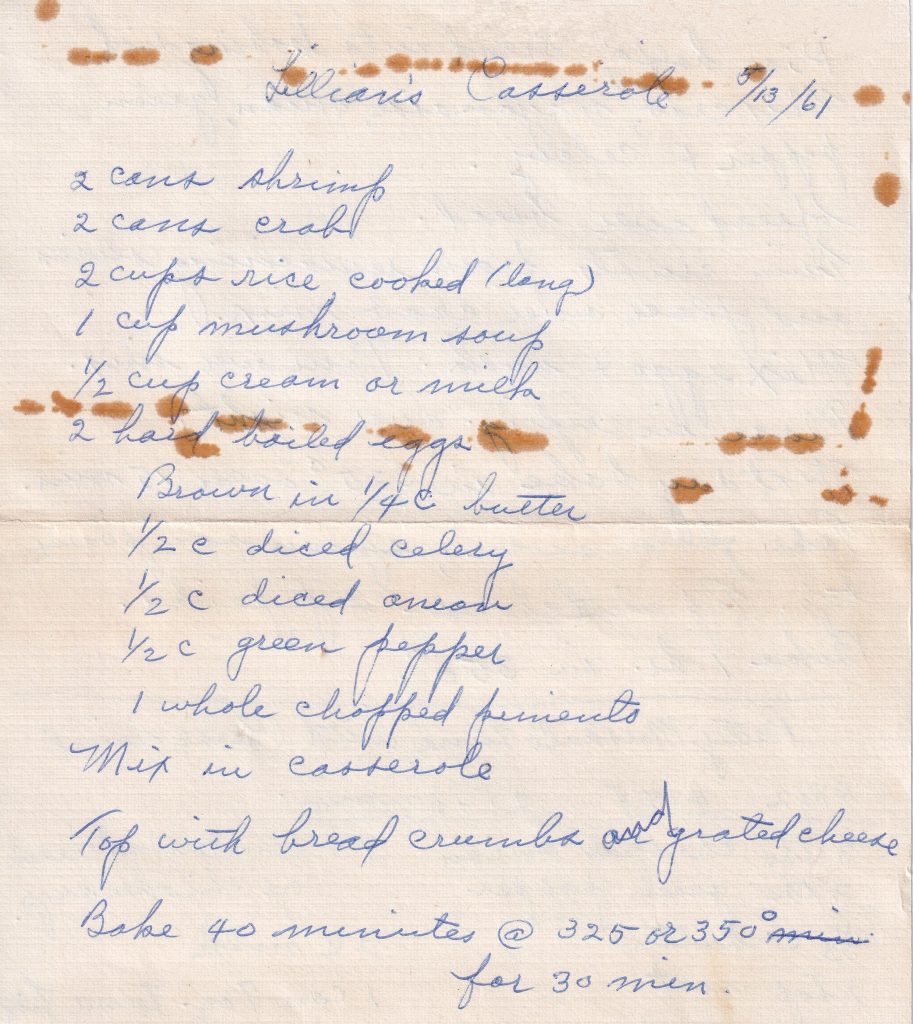 Lillian's Casserole 5/13/61
2 cans shrimp
2 cans crab
2 cups rice cooked (long)
1 cup mushroom soup
1/2 cup cream or milk
2 hard boiled eggs
Brown in 1/4 c butter
1/2 c diced celery
1/2 c diced onion
1/2 c green pepper
1 whole chopped pimento
Mix in casserole
Top with bread crumbs and grated cheese
Bake 40 minutes @ 325 or 350° min
for 30 min.